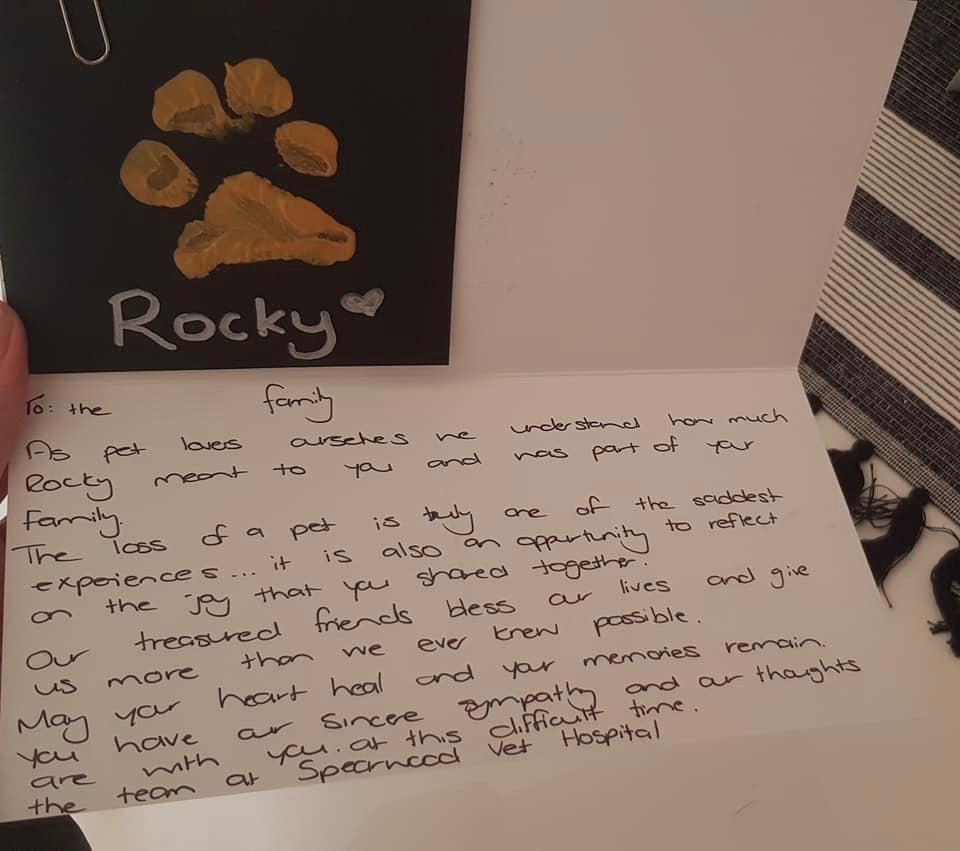 Rocky
To: the family
As pet lovers ourselves we understand how much
Rocky meant to you and was part of your
family.
The loss of a pet is truly one of the saddest
experiences... it is also an opportunity to reflect
on the joy that you shared together.
Our treasured friends bless our lives and give
us more than we ever knew possible.
May your heart heal and your memories remain.
You have our sincere sympathy and our thoughts
are with you. at this difficult time.
the team at Spearwood Vet Hospital